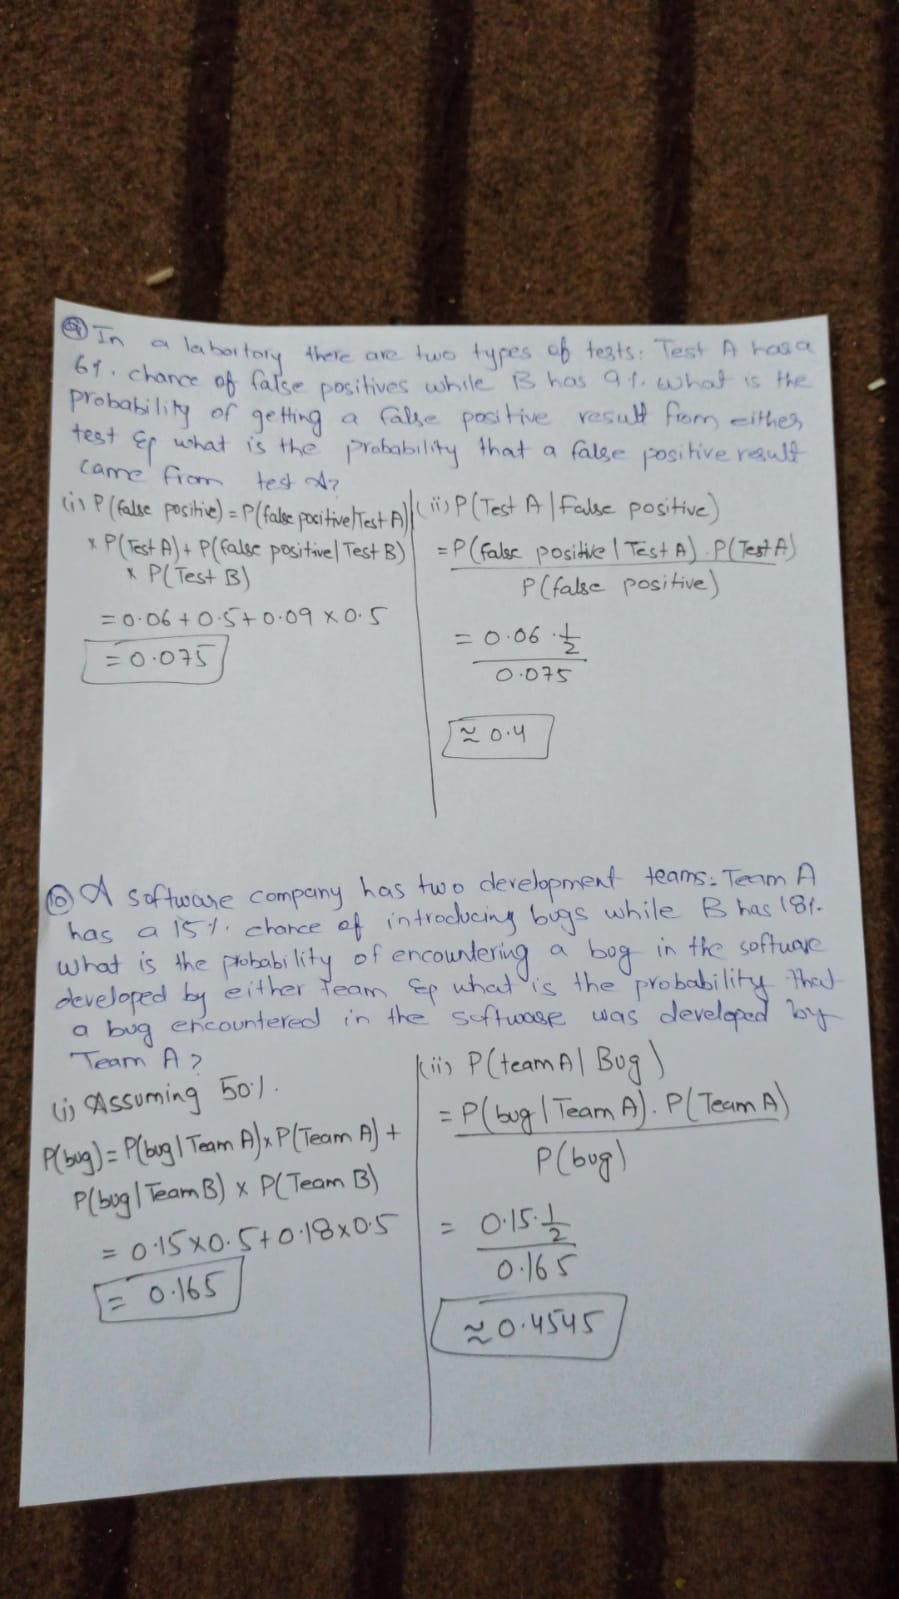 9 In a labortory there are two types of tests: Test A has a
6%. chance of false positives while B has 9%. what is the
probability of getting a false positive result from either
test & what is the probability that a false positive result
came from test A?
(i) P(false positive) = P(false positive|Test A)
x P(Test A) + P(false positive| Test B)
x P(Test B)
= 0.06 + 0.5 + 0.09 x 0.5
= 0.075
(ii) P(Test A | False positive)
= P(false positive | Test A) . P(Test A)
P(false positive)
= 0.06 . 1/2
0.075
≈ 0.4
10 A software company has two development teams: Team A
has a 15%. chance of introducing bugs while B has 18%.
what is the probability of encountering a bug in the software
developed by either Team & what is the probability that
a bug encountered in the software was developed by
Team A?
(i) Assuming 50%.
P(bug) = P(bug | Team A) x P(Team A) +
P(bug | Team B) x P(Team B)
= 0.15 x 0.5 + 0.18 x 0.5
= 0.165
(ii) P(team A | Bug)
= P(bug | Team A) . P(Team A)
P(bug)
= 0.15 . 1/2
0.165
≈ 0.4545